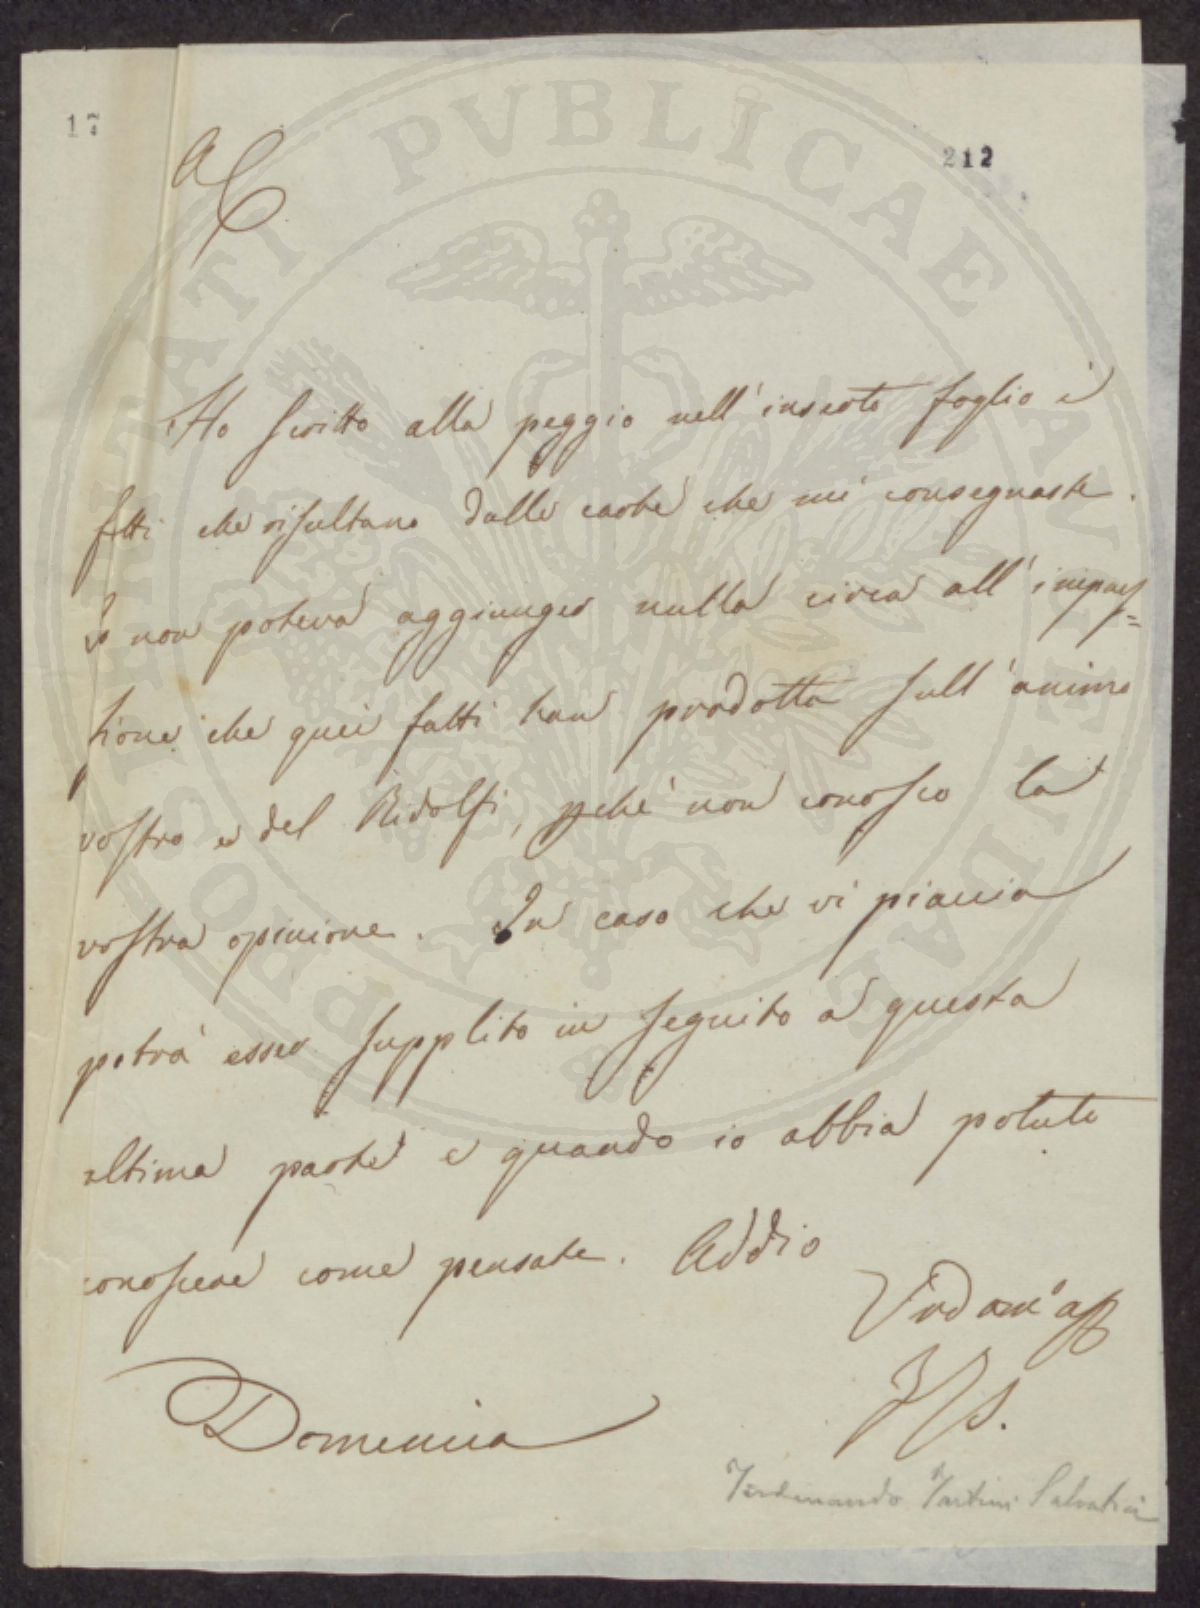 17
212
AC
Ho scritto alla peggio nell'inserto foglio i
fatti che risultano dalle carte che mi consegnaste.
Io non poteva aggiunger nulla circa all'impres=
sione che quei fatti han prodotta sull'animo
vostro e del Ridolfi, pchè non conosco la
vostra opinione. In caso che vi piaccia
potrà esser supplito in seguito a questa
ultima parte e quando io abbia potuto
conoscere come pensate. Addio
Domenica
FTS.
Ferdinando Tartini Salvatici
PROSPERITATI PVBLICAE AVGENDAE